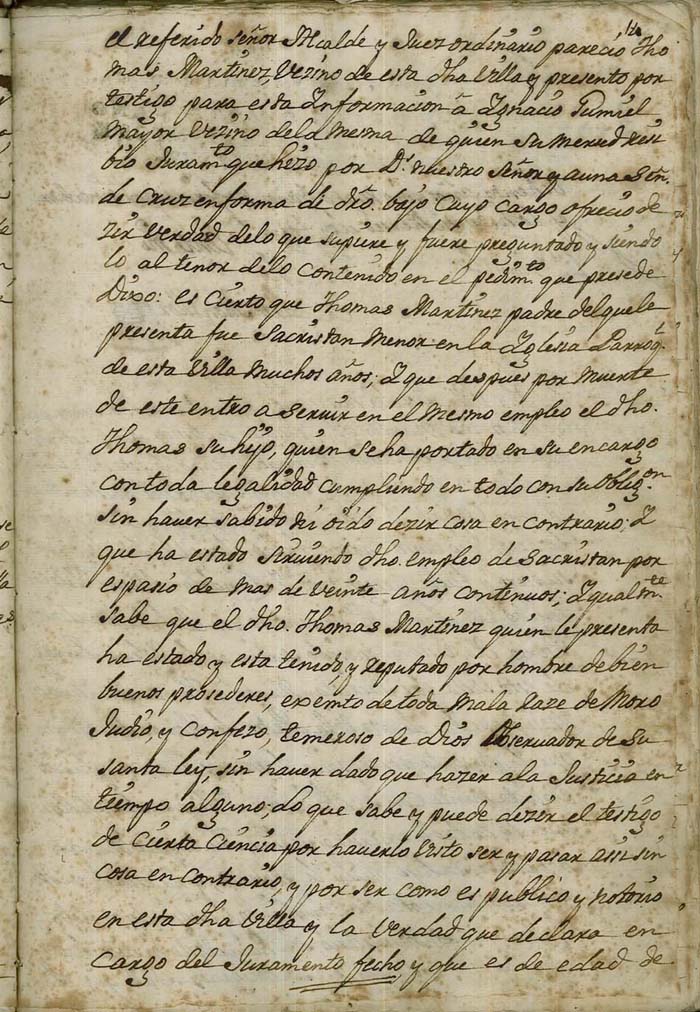 14
el referido señor Alcalde y Juez ordinario parecio Tho
mas Martinez, Vezino de esta dha Villa y presento por
testigo para esta Informacion â Ignacio Gumiel
mayor Vezino dela mesma de quien su merced resi
bio Juramto. que hizo por Ds. nuestro Señor y a una Señ.
de Cruz en forma de dro. bajo Cuyo Cargo ofrecio de
zir Verdad delo que supiere y fuere preguntado y siendo
lo al tenor delo Contenido en el pedimto. que presede
Dixo: es Cierto que Thomas Martinez padre del que le
presenta fue Sacristan Menor en la Iglesia Parroql.
de esta Villa Muchos años; Y que despues por Muerte
de este entro a Servir en el Mesmo empleo el dho.
Thomas su hijo, quien se ha portado en su encargo
con toda legalidad Cumpliendo en todo con su Obligon.
sin haver sabido ni oido dezir Cosa en Contrario; Y
que ha estado sirviendo dho. empleo de Sacristan por
espasio de mas de Veinte años Continuos; Igualmte.
sabe que el dho. Thomas Martinez quien le presenta
ha estado, y esta tenido, y reputado por hombre de bien
buenos prosederes, exemto de toda Mala Raze de Moro
Judio, y Confezo, temeroso de Dios Observador de Su
santa ley, sin haver dado que hazer ala Justicia en
tiempo alguno; Lo que sabe y puede dezir el testigo
de Cierta Ciencia por haverlo Visto ser y pasar assi sin
Cosa en Contrario, y por ser como es publico y notorio
en esta dha Villa y la Verdad que declara en
Cargo del Juramento fecho, y que es de edad de